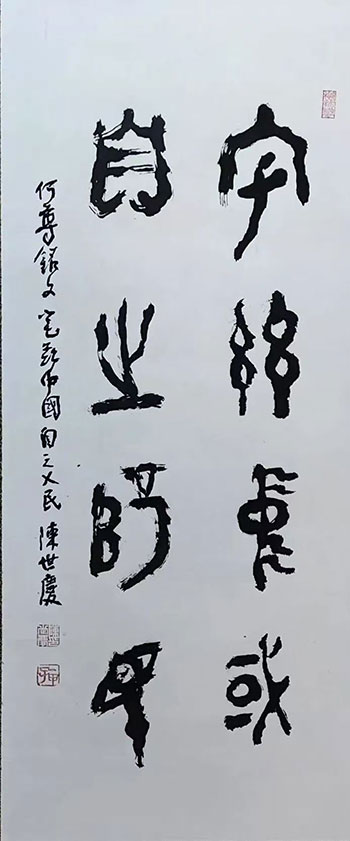 宅茲中或
自之辥民
何尊銘文 宅茲中國自之乂民 陳世慶